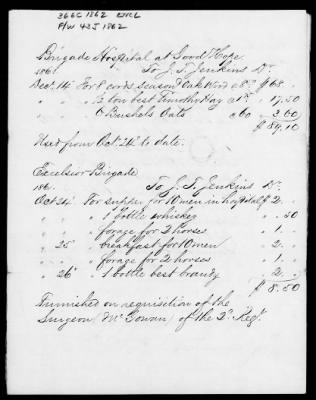 366C 1862 QMC
F/W 43J 1862
Brigade Hospital at Good Hope
1861. To J. T. Jenkins Dr.
Decr. 14 For 8 cords season Oak Wood a 8 $68.
" " ton best Timothy Hay a 17.50
" " 6 Bushels Oats a 60 3.60
$89.10
Used from Oct. 24 to date.
Excelsior Brigade
1861. To J. T. Jenkins Dr.
Oct 24 For supper for 10 men in hospital $2.
" " " 1 bottle whiskey .50
" " " forage for 2 horses 1.
" 25 " breakfast for 10 men 2.
" " " forage for 2 horses 1.
" 26 " 1 bottle best brandy 2.
$8.50
Furnished on requisition of the
Surgeon (McGowan) of the 3d Regt.